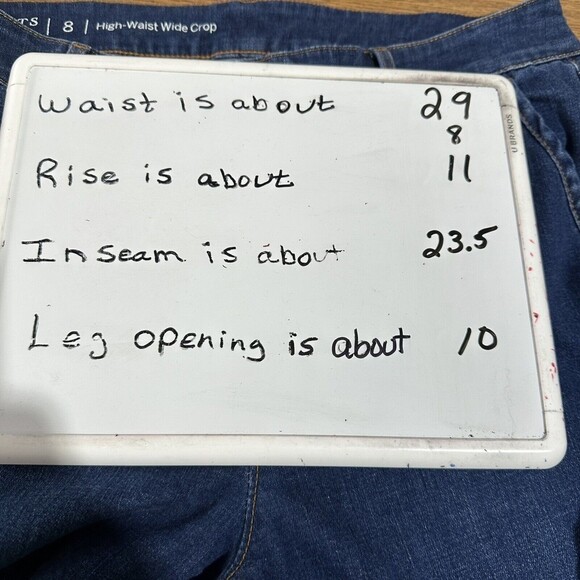 TS | 8 | High-Waist Wide Crop
Waist is about 29
8
Rise is about 11
Inseam is about 23.5
Leg opening is about 10
U BRANDS